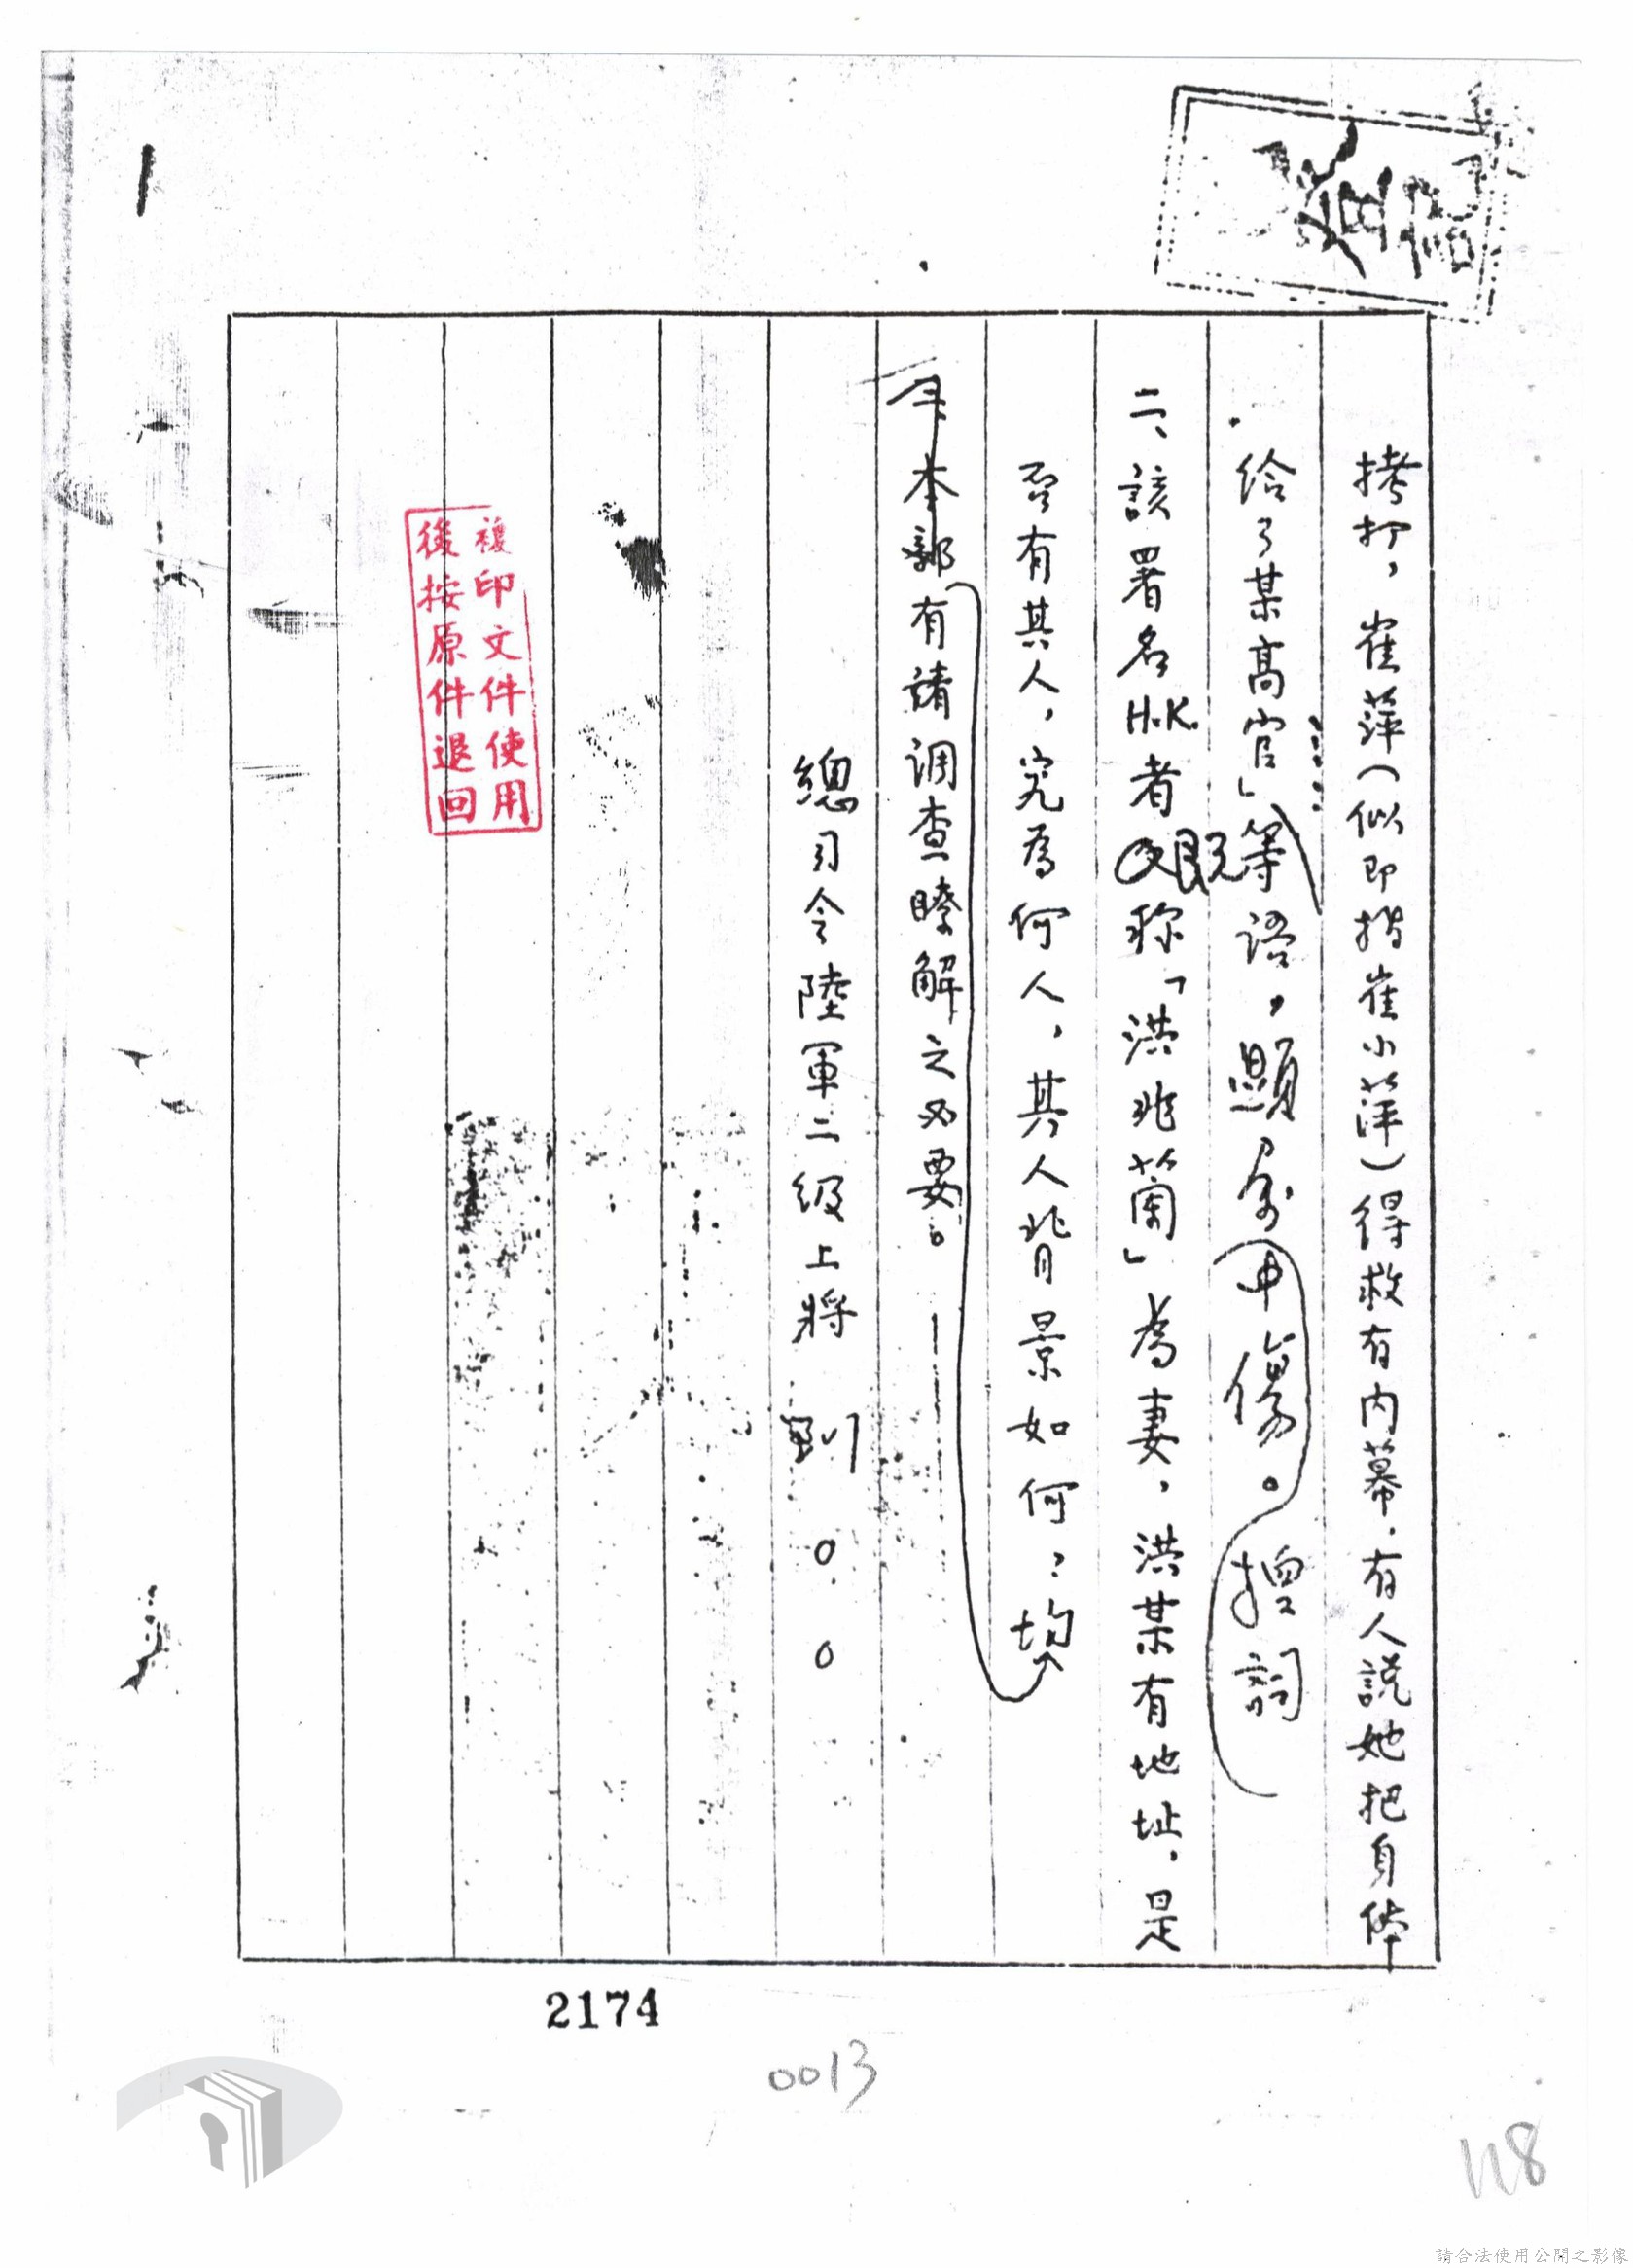 拷打，崔萍（似即指崔小萍）得救有內幕．有人說她把身体
給了某高官」等語，顯屬中傷。控詞
二、該署名H.K.者又既稱「洪兆蘭」為妻，洪某有地址，是
否有其人，究為何人，其人背景如何？均
本部有請调查瞭解之必要。
總司令陸軍二級上將劉○○
複印文件使用
後按原件退回
2174
0013
118
請合法使用公開之影像